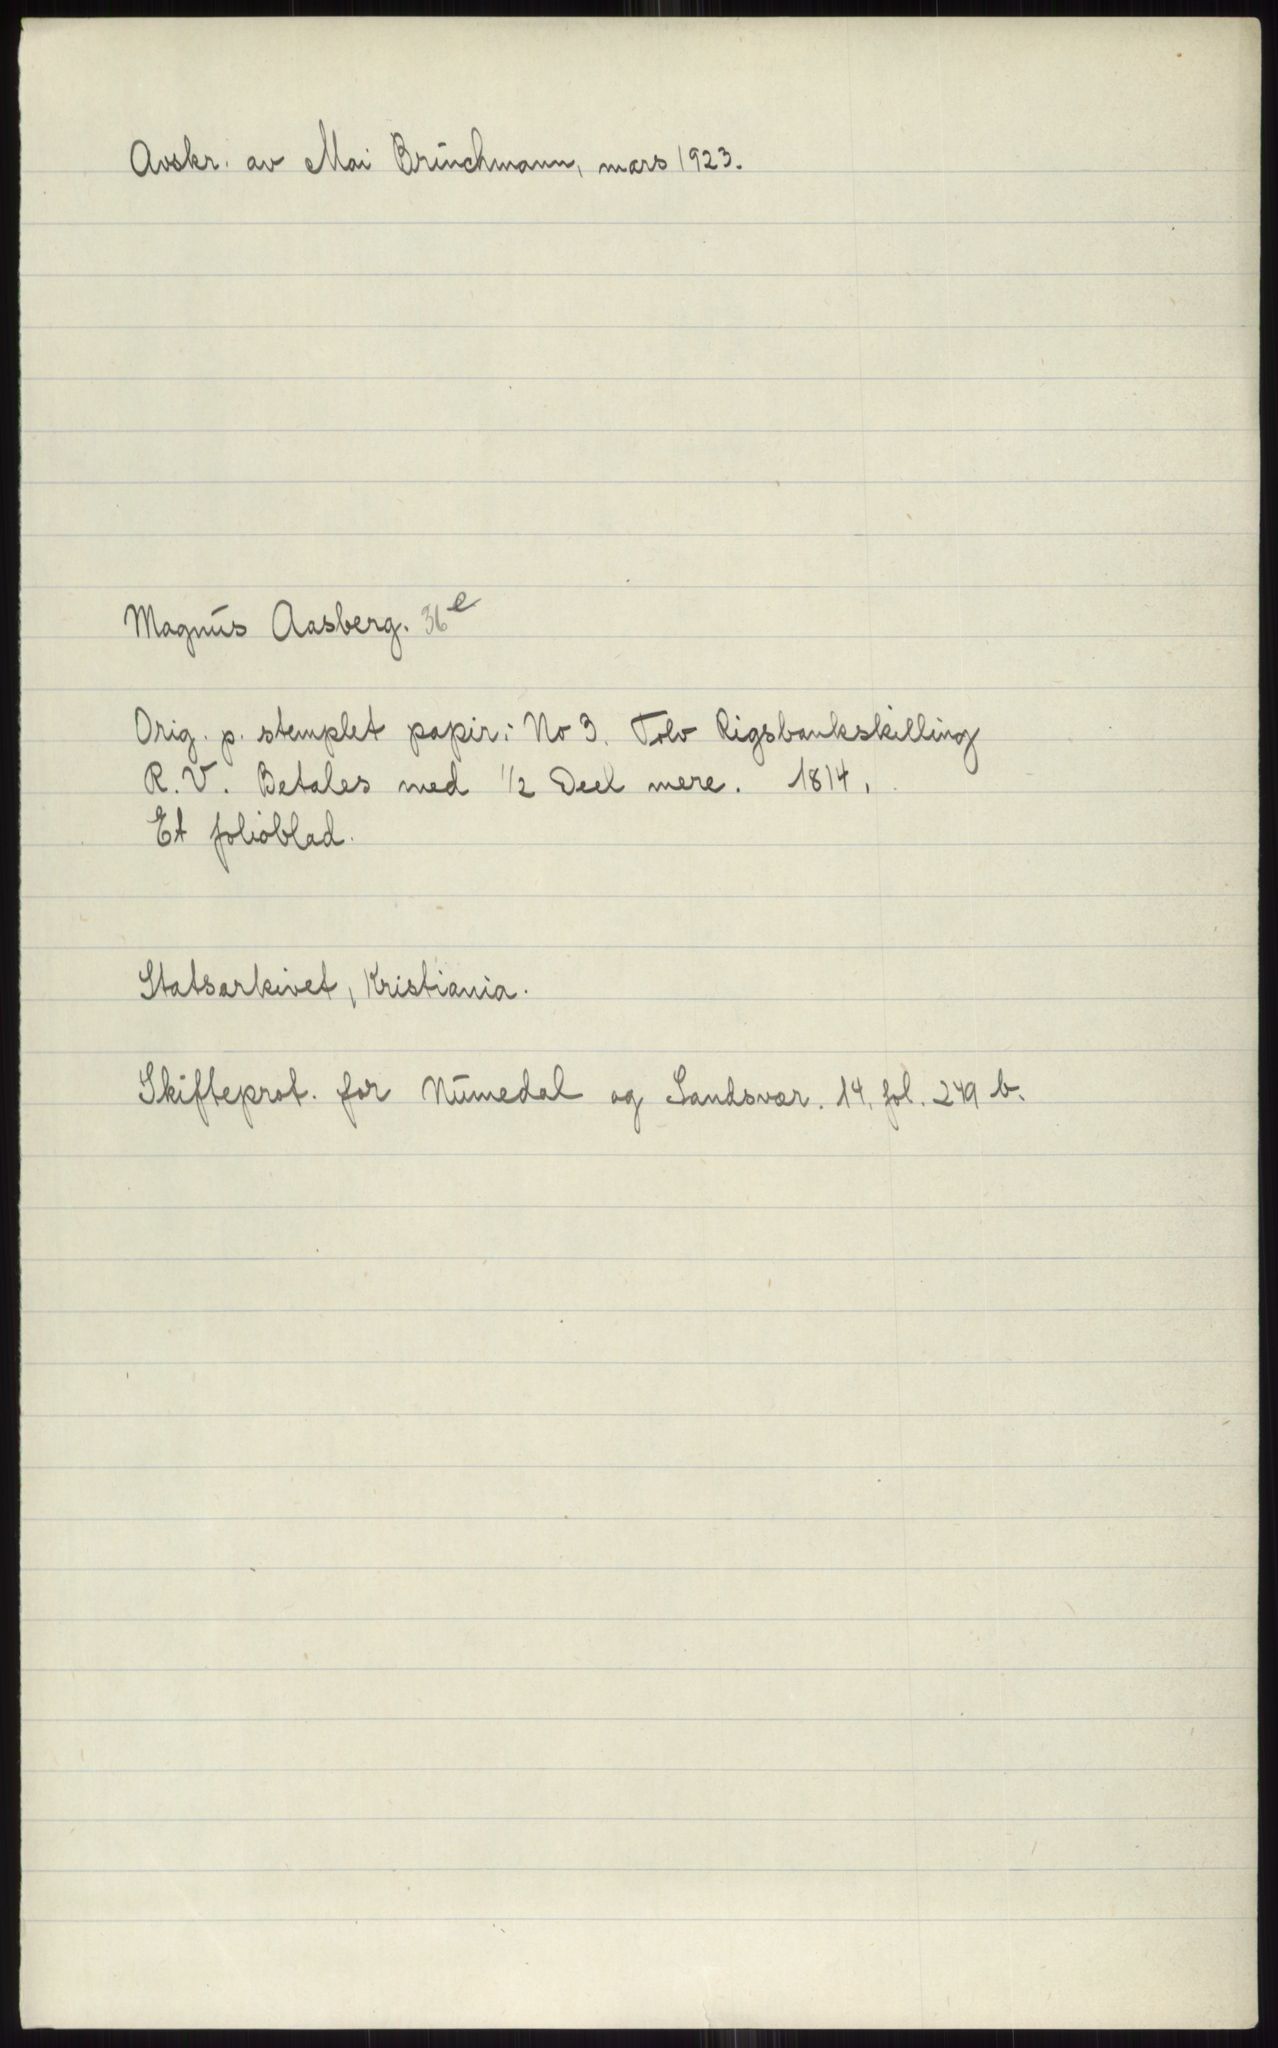 Avskr. av Mai Bruchmann, mars 1923.
Magnus Aasberg. 36 e
Orig. p. stemplet papir: No 3. Tolv Rigsbankskilling
R. V. Betales med 1/2 Deel mere. 1814.
Et folioblad.
Statsarkivet, Kristiania.
Skifteprot. for Numedal og Sandsvær. 14, fol. 249 b.